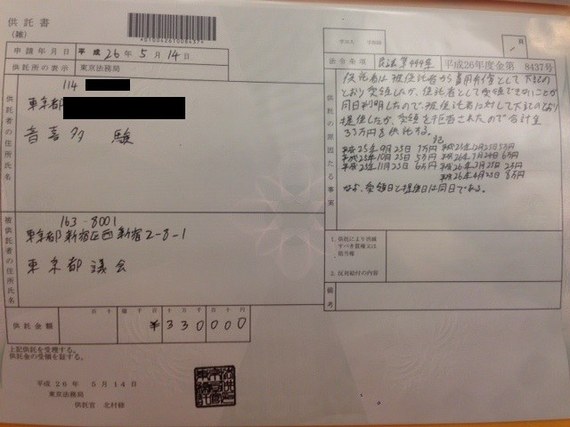 供託書
(雑)
申請年月日 平成26年5月14日
供託所の表示 東京法務局
供託者の住所氏名
114
東京都
音喜多 駿
被供託者の住所氏名
163-8001
東京都新宿区西新宿2-8-1
東京都議会
供託金額 ¥330000
上記供託を受理する。
供託金の受領を証する。
平成26年5月14日
東京法務局
供託官 北村
法令条項 民法第494条 平成26年度金第8437号
供託の原因たる事実
供託者は被供託者から費用弁償として下記の
とおり受領したが、供託者として受領できないことが
同日判明したので、被供託者に対して下記のとおり
提供したが、受領を拒否されたので合計金
33万円を供託する。
記
平成25年9月25日
平成25年10月25日 5万円
平成25年11月25日 6万円
なお、受領日と提供日は同日である。
1. 供託により消滅すべき質権又は抵当権
2. 反対給付の内容
備考